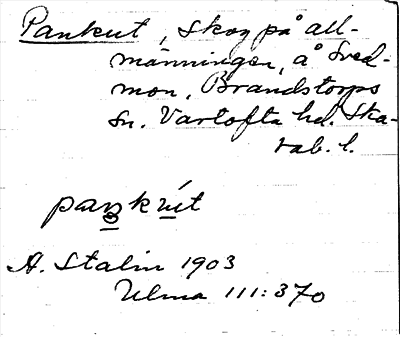 Pankut, skog på all-
männingen, å Sved-
mon, Brandstorps
sn. Vartofta hd. Ska-
rab. l.
paŋkút
A. Stalin 1903
Ulma 111:370